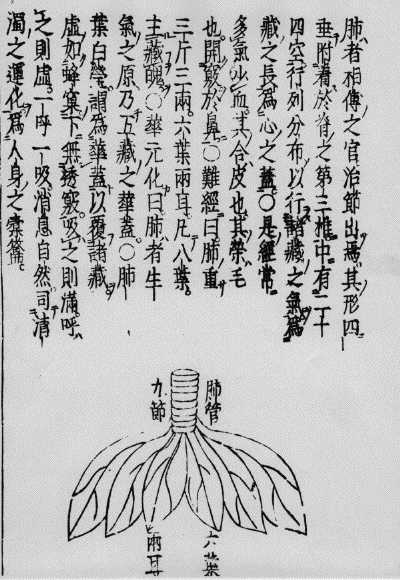 肺者相傳之官治節出焉其形四
垂附着於脊之第三椎中有二十
四空行列分布以行諸藏之氣爲
藏之長爲心之蓋○是經常
多氣少血其合皮也其榮毛
也開竅於鼻○難經曰肺重
三斤三兩六葉兩耳凡八葉。
主藏魄○華元化曰肺者生
氣之原乃五藏之華蓋○肺
葉白瑩謂爲華蓋以覆諸藏
虛如蜂窠下無透竅吸之則滿呼
之則虛一呼一吸消息自然司清
濁之運化爲人身之橐籥。
肺管
九節
六葉
兩耳